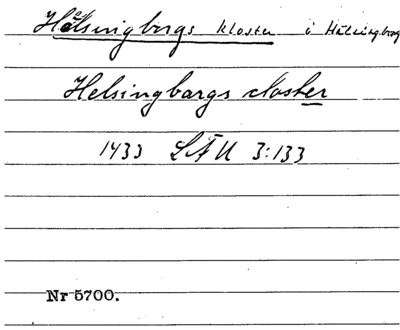 Hälsingborgs kloster i Hälsingborg
Helsingbargs closter
1433 LÄU 3:133
Nr 5700.